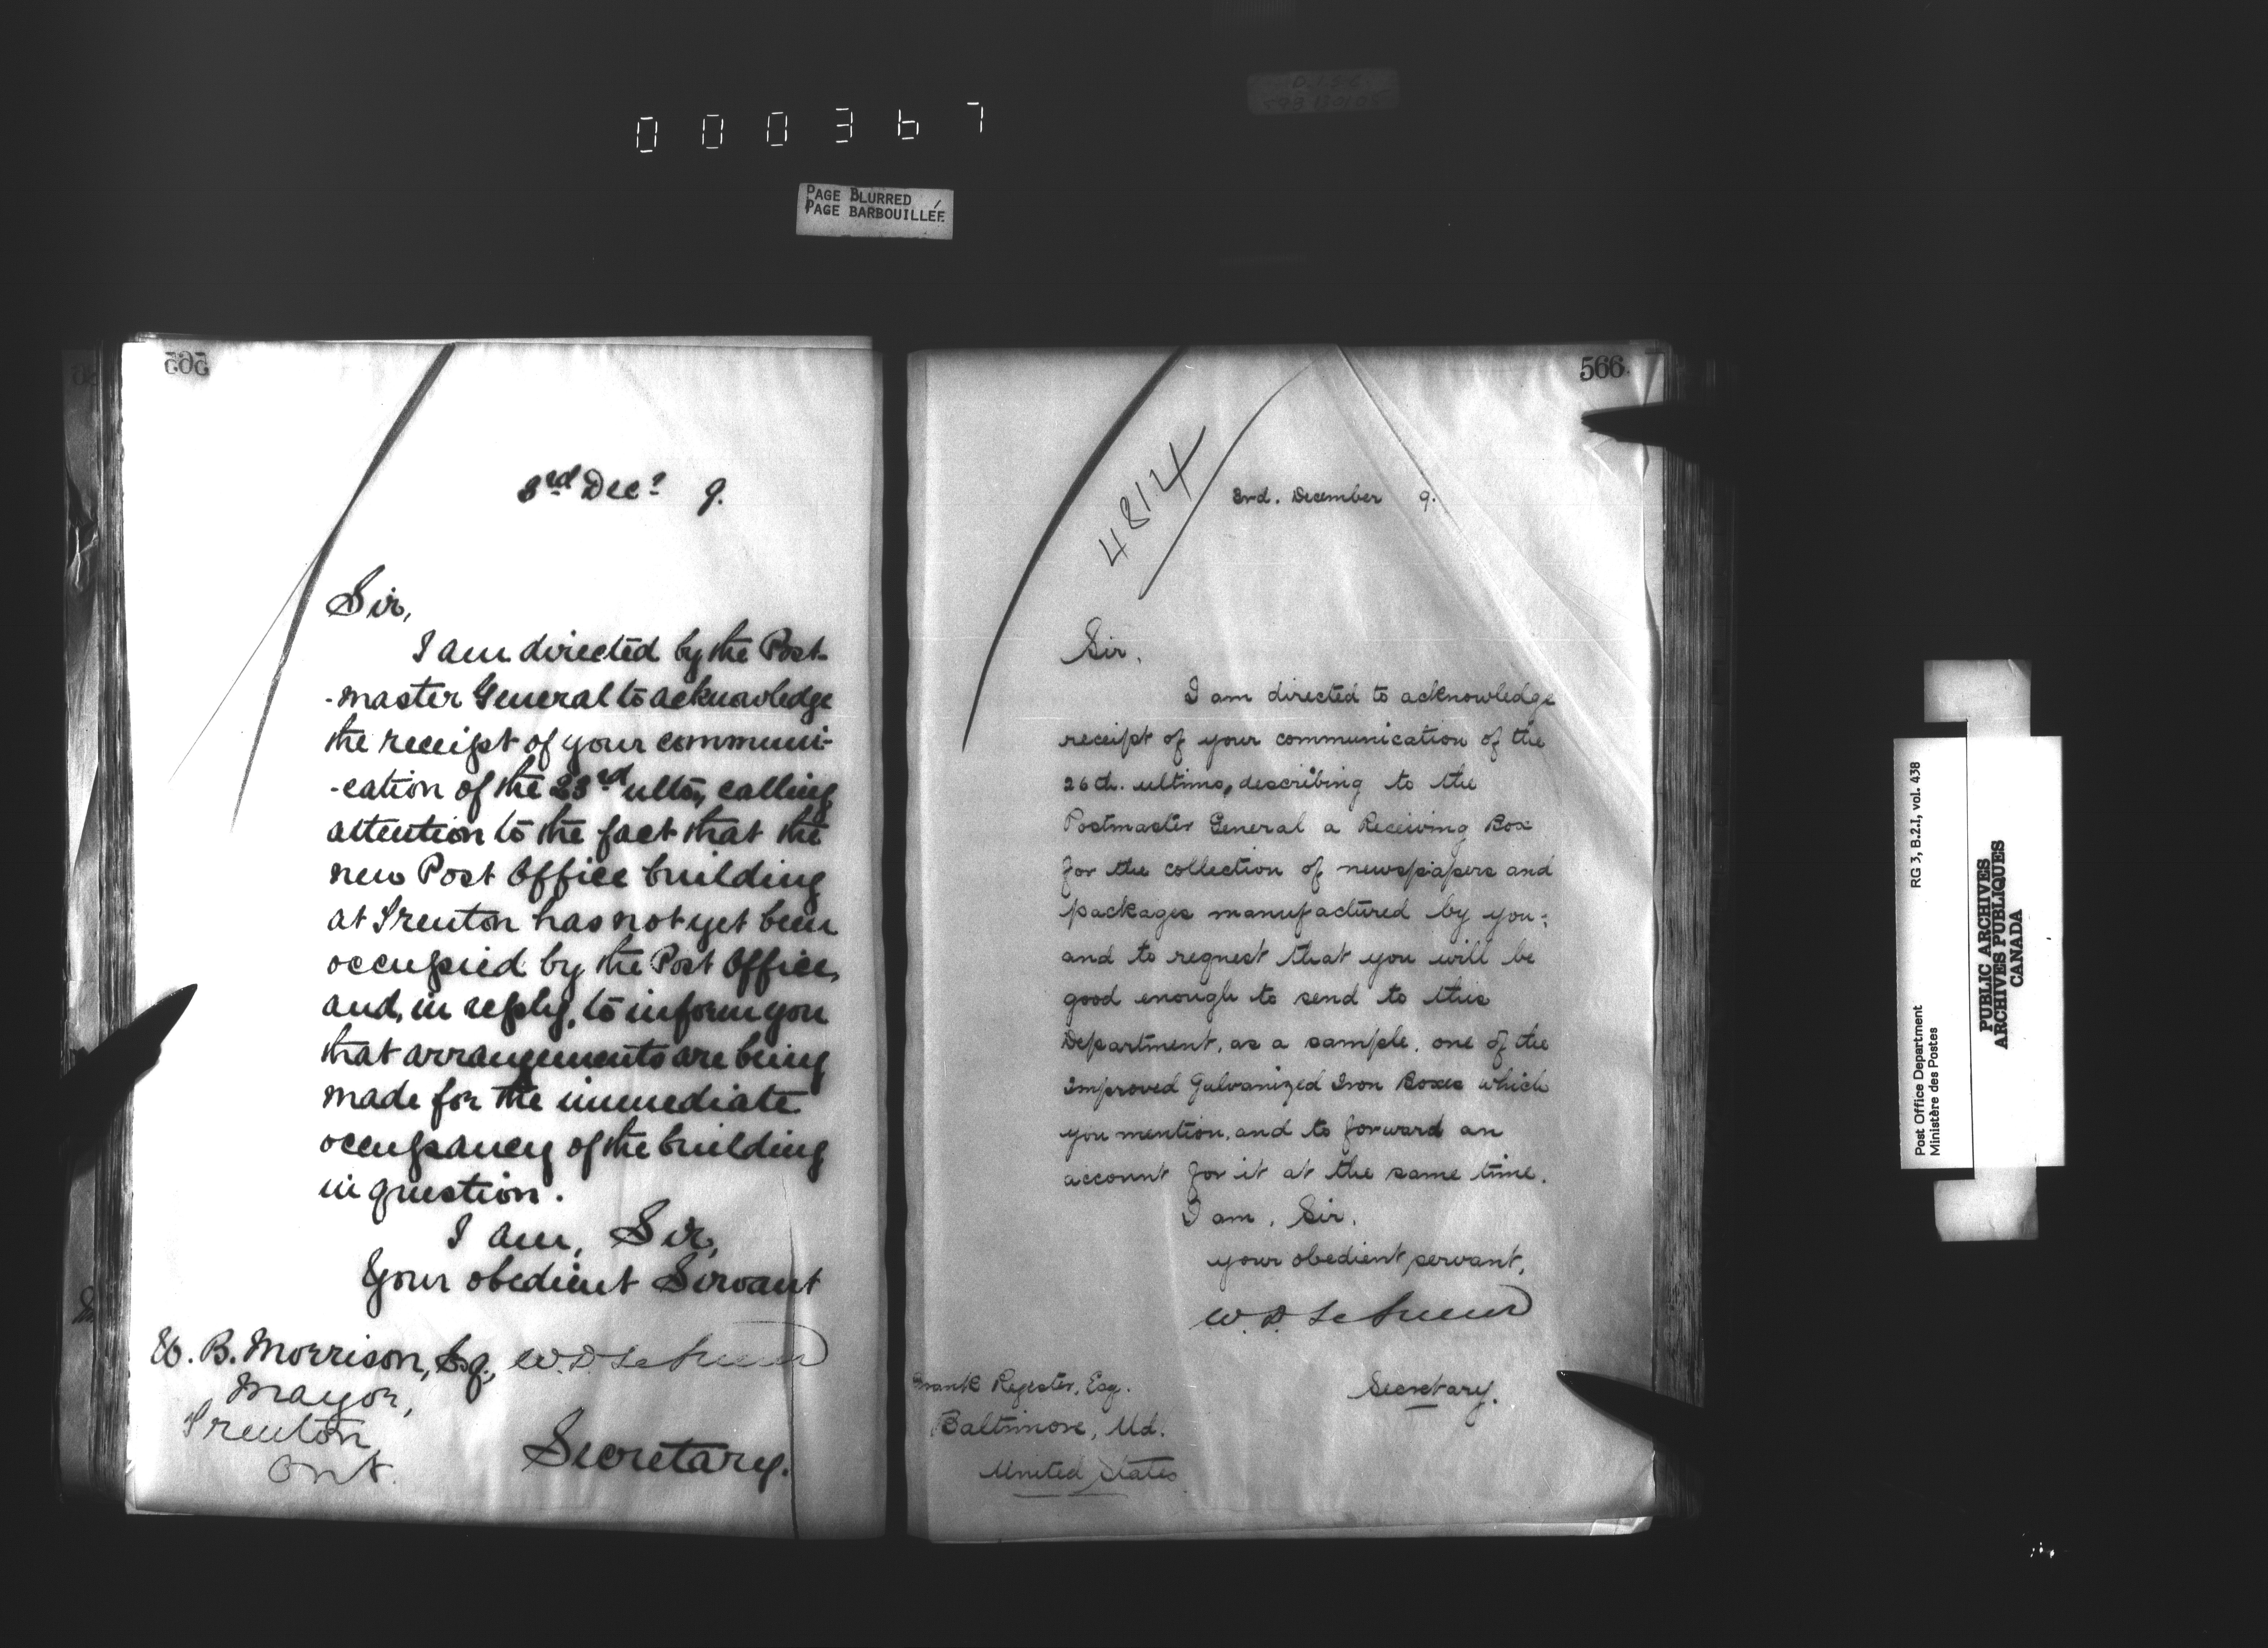 000367
PAGE BLURRED
PAGE BARBOUILLÉE
565
3rd Decr 9.
Sir,
I am directed by the Post-
-master General to acknowledge
the receipt of your communi-
-cation of the 23rd ulto, calling
attention to the fact that the
new Post Office building
at Trenton has not yet been
occupied by the Post Office,
and, in reply, to inform you
that arrangements are being
made for the immediate
occupancy of the building
in question.
I am, Sir,
Your obedient Servant
W. D. LeSueur
B. Morrison, Esq.,
Mayor,
Trenton,
Ont.
Secretary.
566
4814
3rd. December 9.
Sir,
I am directed to acknowledge
receipt of your communication of the
26th. ultimo, describing to the
Postmaster General a Receiving Box
for the collection of newspapers and
packages manufactured by you;
and to request that you will be
good enough to send to this
Department, as a sample, one of the
improved Galvanized Iron Boxes which
you mention, and to forward an
account for it at the same time.
I am, Sir,
your obedient servant,
W. D. LeSueur
Secretary.
Frank Register, Esq.
Baltimore, Md.
United States
Post Office Department
Ministère des Postes
RG 3, B.2.I, vol. 438
PUBLIC ARCHIVES
ARCHIVES PUBLIQUES
CANADA